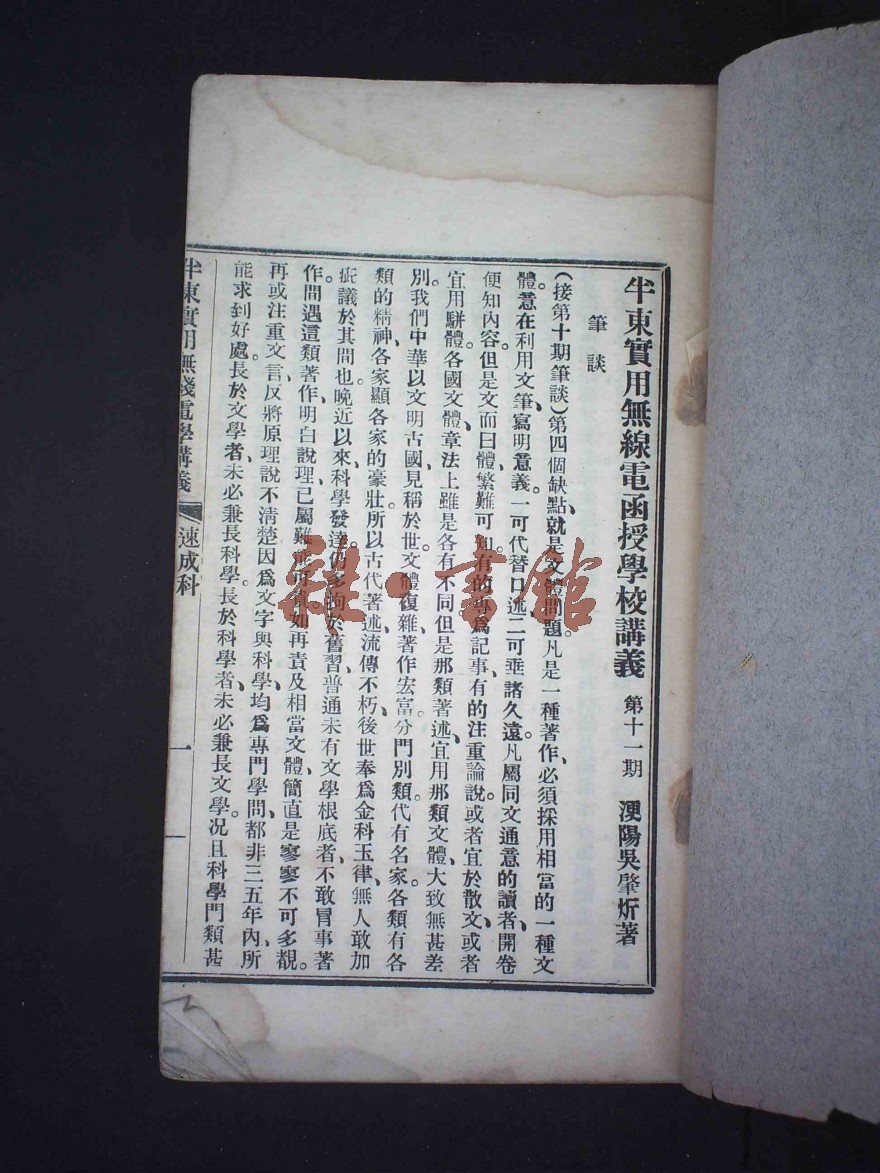 半東實用無線電函授學校講義　第十一期　浭陽吳肇炘著
筆談
(接第十期筆談)第四個缺點、就是文體問題。凡是一種著作、必須採用相當的一種文
體。意在利用文筆、寫明意義。一可代替口述、二可垂諸久遠。凡屬同文通意的讀者、開卷
便知內容。但是文而曰體、繁難可知。有的專爲記事、有的注重論說、或者宜於散文、或者
宜用駢體。各國文體、章法上雖是各有不同、但是那類著述、宜用那類文體、大致無甚差
別。我們中華以文明古國、見稱於世。文體復雜、著作宏富。分門別類、代有名家。各類有各
類的精神、各家顯各家的豪壯。所以古代著述、流傳不朽、後世奉爲金科玉律、無人敢加
疵議於其間也。晚近以來、科學發達、仍多拘於舊習、普通未有文學根底者、不敢冒事著
作。間遇這類著作、明白說理、已屬難能可貴、如再責及相當文體、簡直是寥寥不可多覩。
再或注重文言、反將原理說不清楚。因爲文字與科學、均爲專門學問、都非三五年內、所
能求到好處。長於文學者、未必兼長科學。長於科學者、未必兼長文學。况且科學門類甚
半東實用無綫電學講義　速成科　一
雜·書館